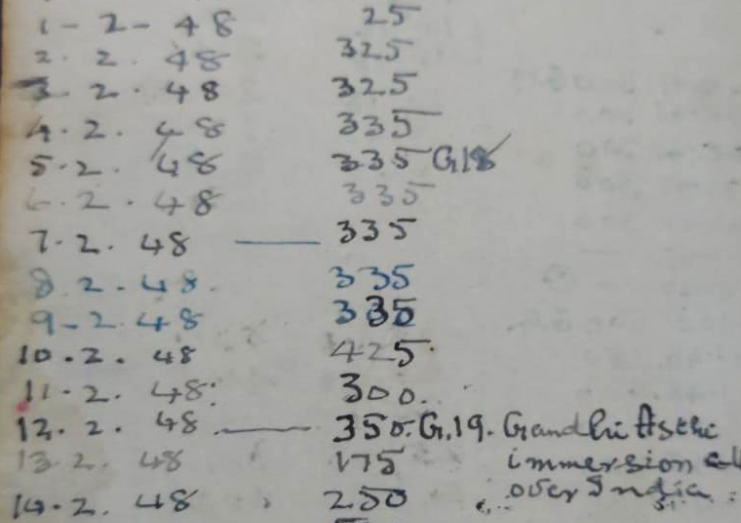 1-2-48 25
2.2.48 325
3.2.48 325
4.2.48 335
5.2.48 335 G.18
6.2.48 335
7.2.48 — 335
8.2.48. 335
9-2.48 335
10.2.48 425.
11.2.48. 300.
12.2.48. — 350. G.19. Gandhi Asthi
13.2.48 175 immersion all
14.2.48 250 over India.